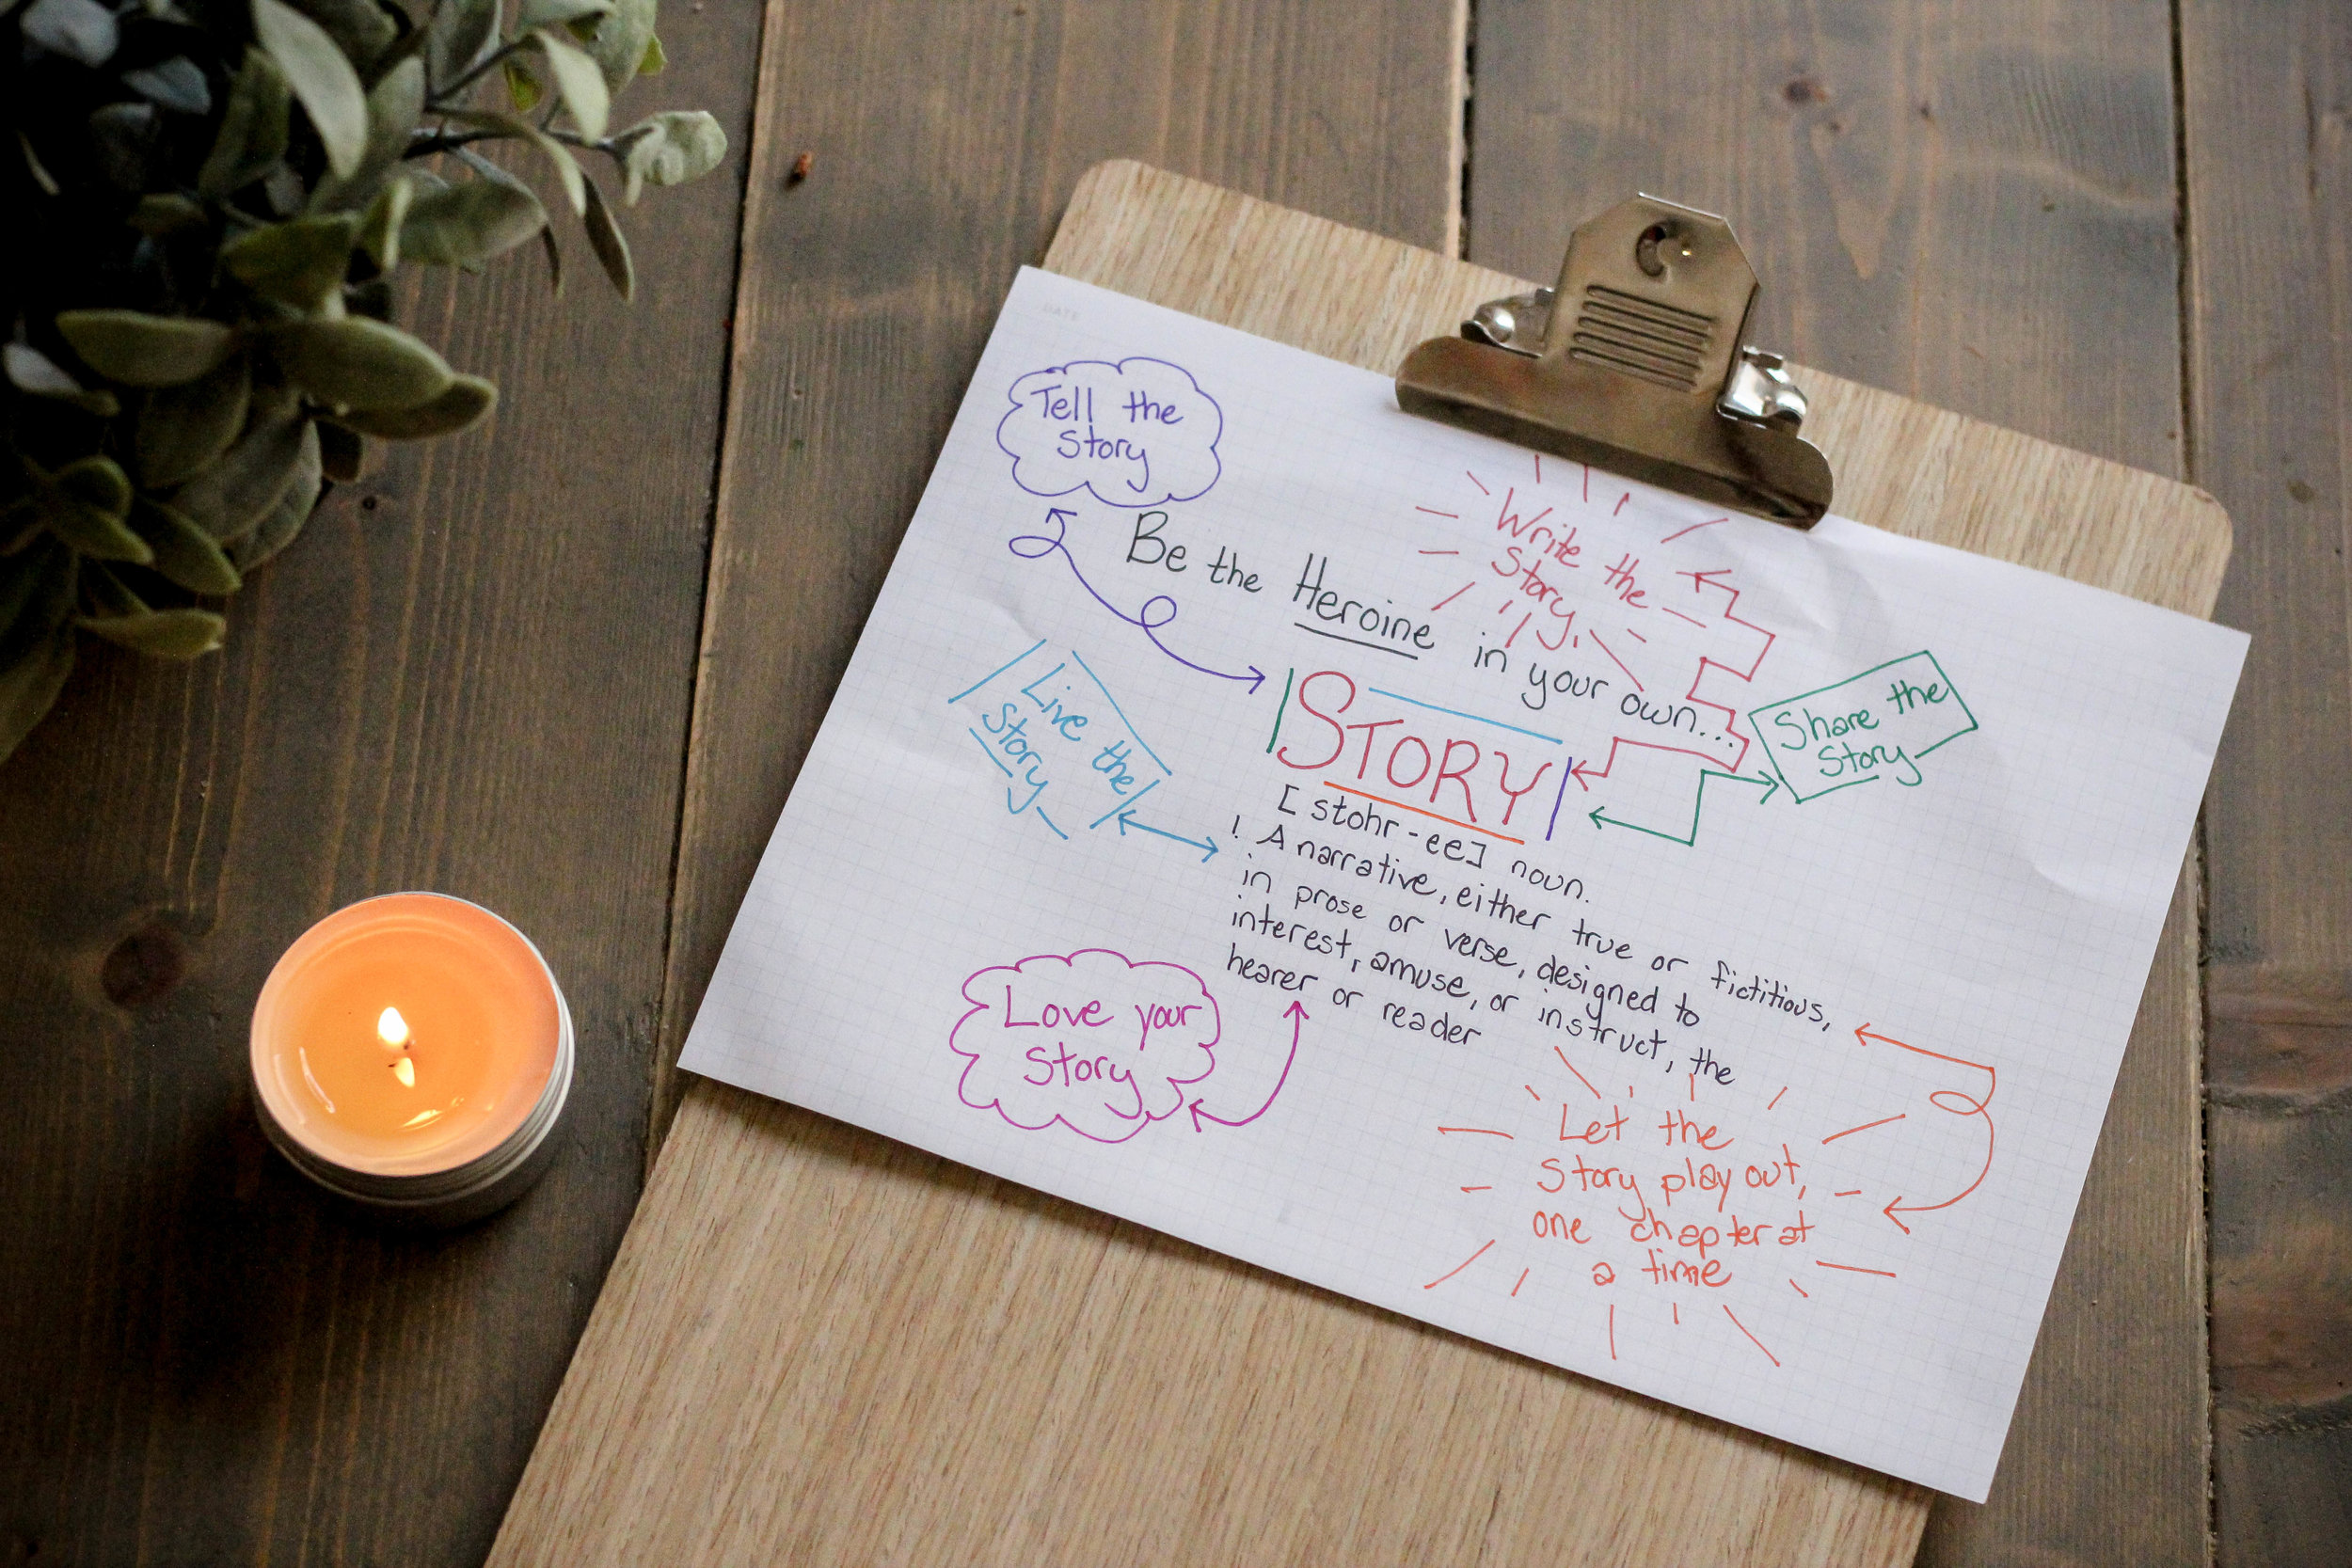 DATE
Tell the
Story
Write the
Story.
Be the Heroine in your own...
Live the
Story
STORY
Share the
Story
[stohr-ee] noun.
1. A narrative, either true or fictitious,
in prose or verse, designed to
interest, amuse, or instruct, the
hearer or reader
Love your
Story
Let the
Story play out,
one chapter at
a time